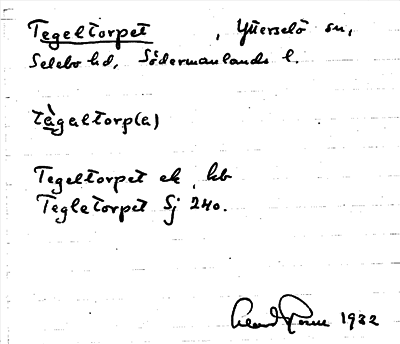 Tegeltorpet, Ytterselö sn,
Selebo hd, Södermanlands l.
tègaltorp(a)
Tegeltorpet ek, hb
Tegletorpet Sj 240.
1932